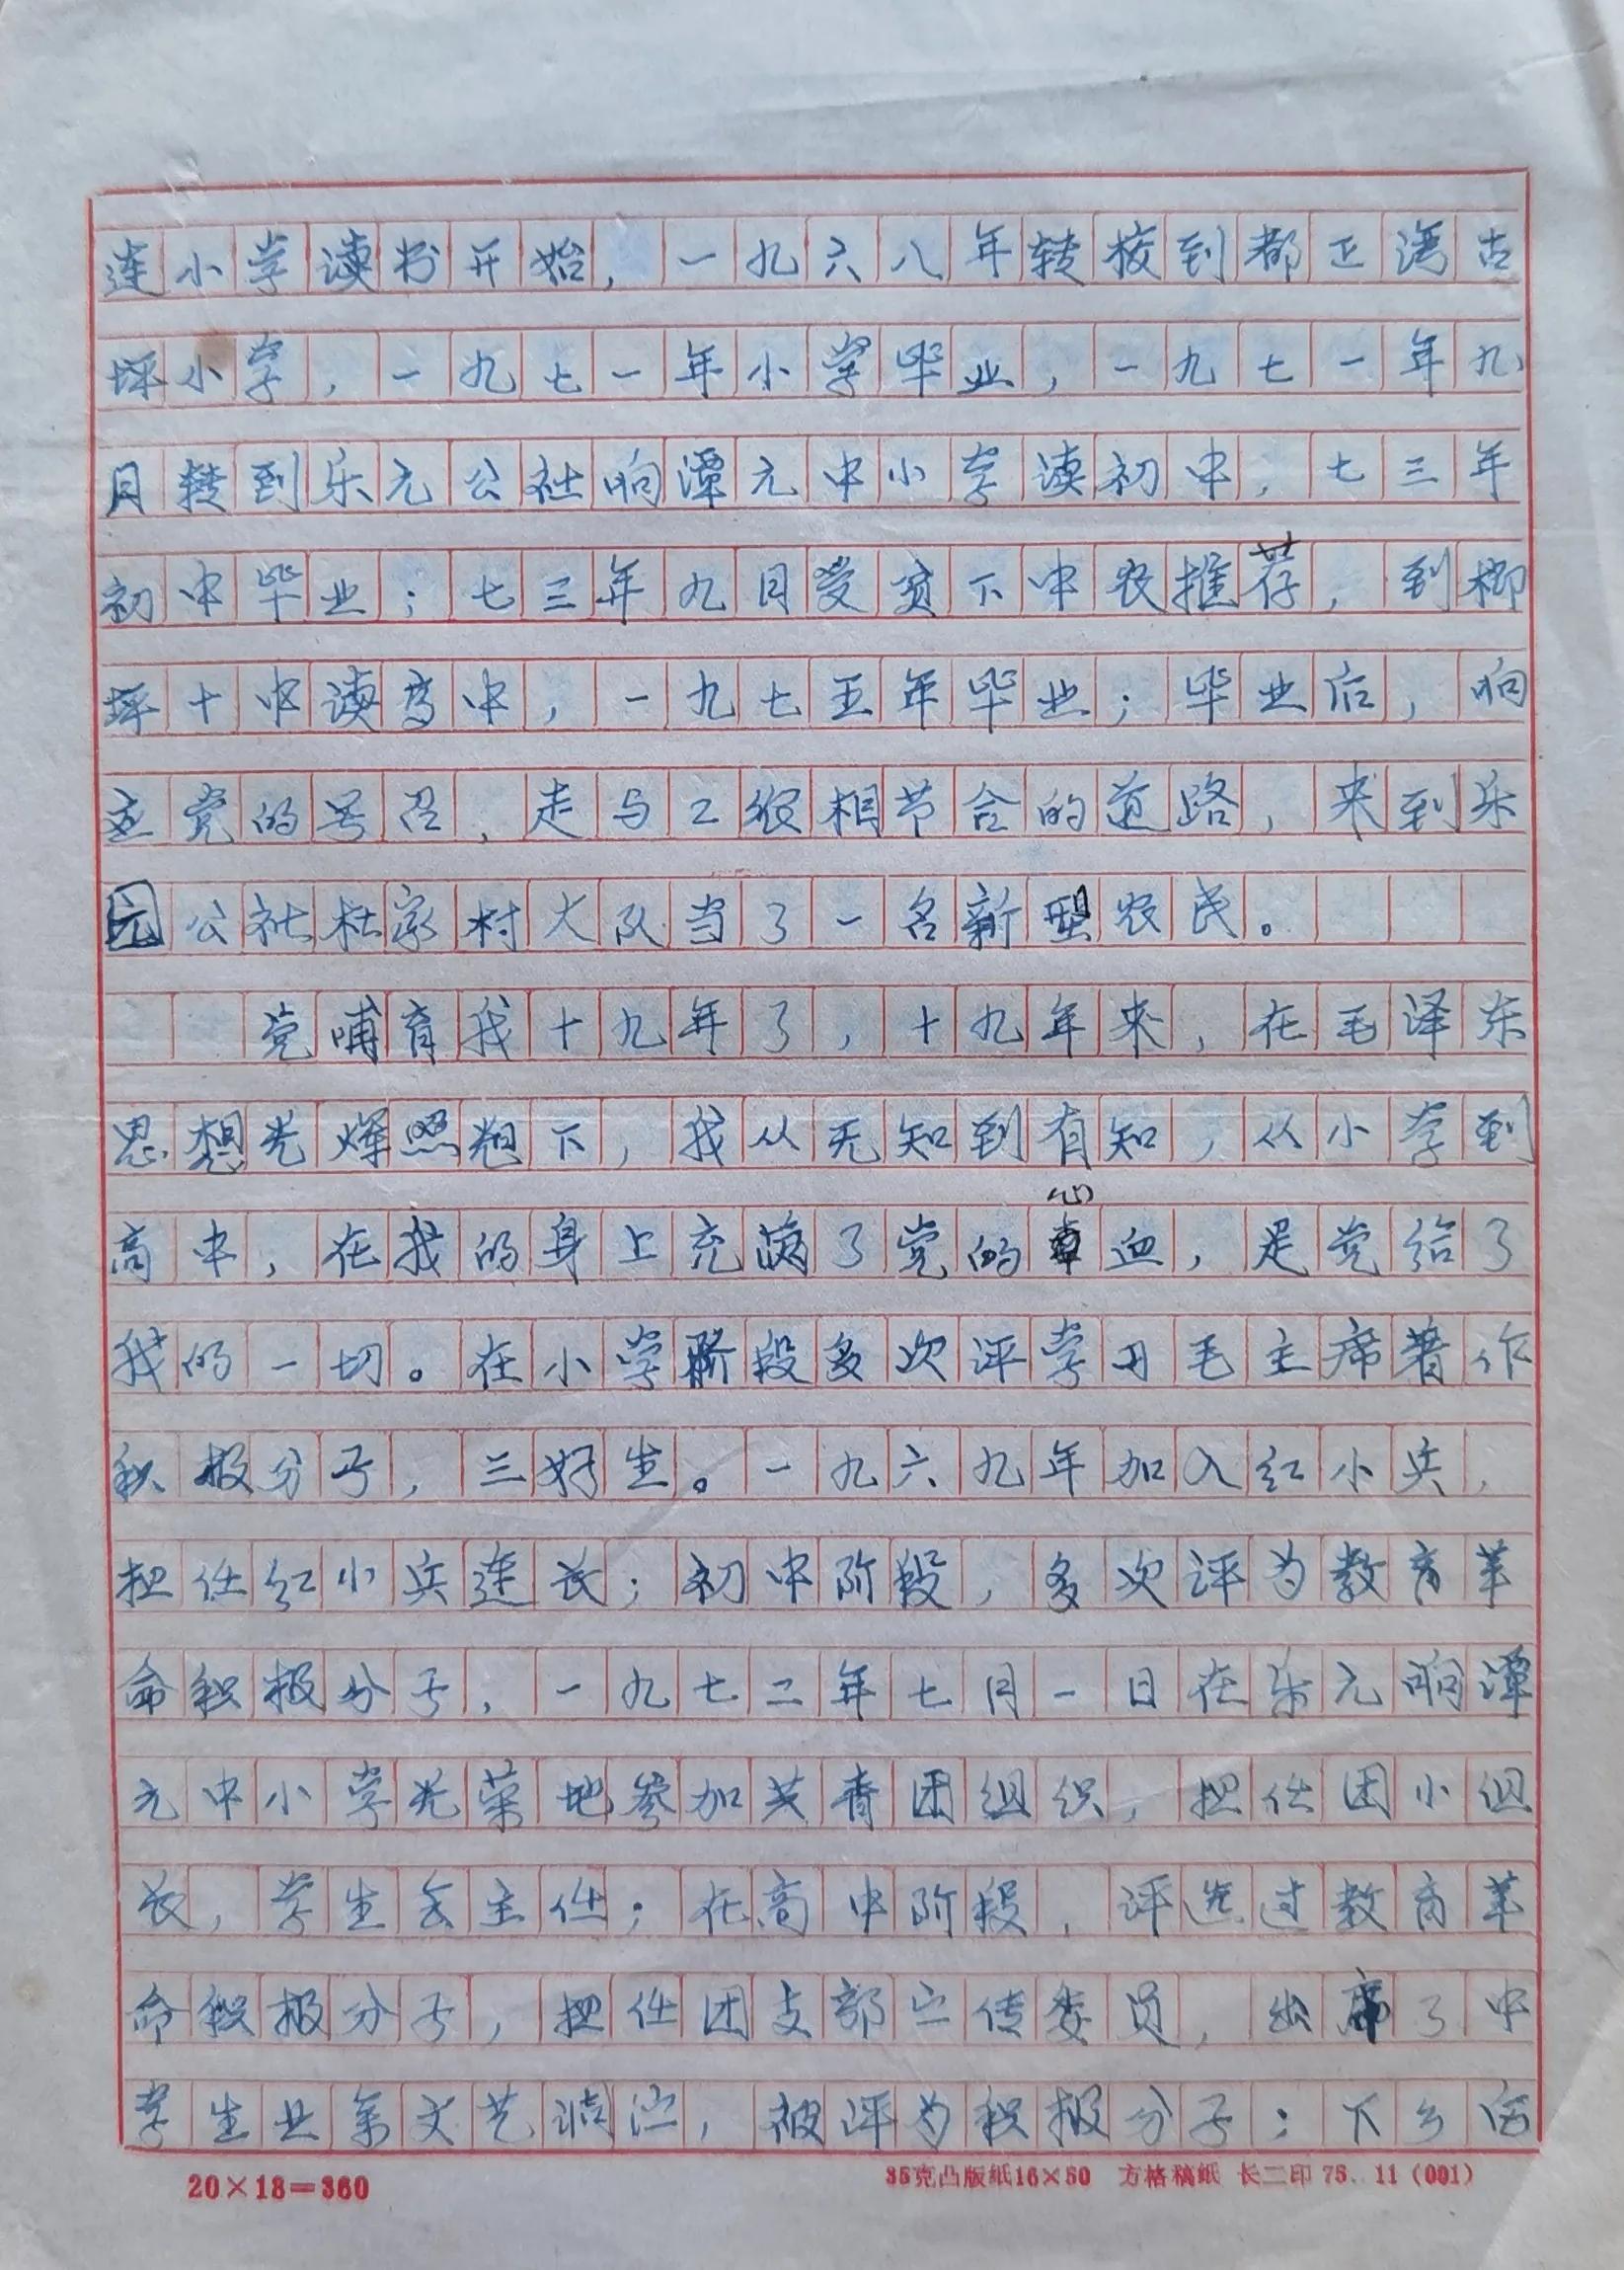 连小学读书开始，一九六八年转校到都正湾古
坪小学，一九七一年小学毕业，一九七一年九
月转到乐元公社响潭元中小学读初中，七三年
初中毕业；七三年九月受贫下中农推荐，到榔
坪十中读高中，一九七五年毕业；毕业后，响
应党的号召，走与工农相节合的道路，来到乐
园公社杜家村大队当了一名新型农民。
党哺育我十九年了，十九年来，在毛泽东
思想光辉照耀下，我从无知到有知，从小学到
高中，在我的身上充满了党的心血，是党给了
我的一切。在小学阶段多次评学用毛主席著作
积极分子，三好生。一九六九年加入红小兵，
担任红小兵连长；初中阶段，多次评为教育革
命积极分子，一九七二年七月一日在乐元响潭
元中小学光荣地参加共青团组织，担任团小组
长，学生会主任；在高中阶段，评选过教育革
命积极分子，担任团支部宣传委员，出席了中
学生业余文艺调演，被评为积极分子；下乡后
20×18=360 35克凸版纸16×50 方格稿纸 长二印 75.11（001）